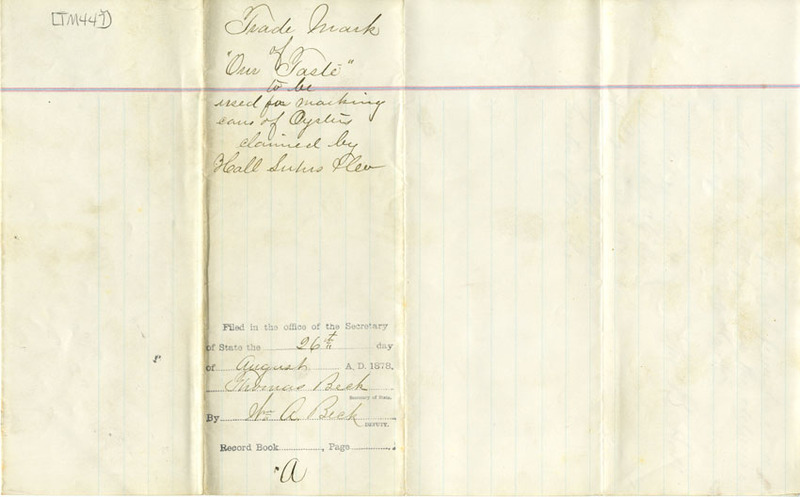 [TM447]
Trade Mark
of
"Our Taste"
to be
used for marking
cans of Oysters
claimed by
Hall Luhrs & Co
Filed in the office of the Secretary
of State the 26th day
of August A. D. 1878.
Thomas Beck
Secretary of State.
By Wm A. Beck
DEPUTY.
Record Book , Page .
A